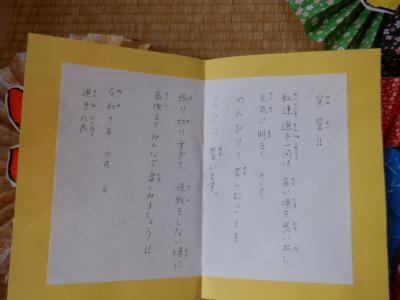 宣誓!!
私達選手一同は 若い頃を思い出し、
元気に明るく、そして
のんびりと楽しむことを
ここに 誓います。
張り切りすぎて、怪我をしない様に
最後までみんなで楽しみましょう!!
令和7年 10月 日
選手代表